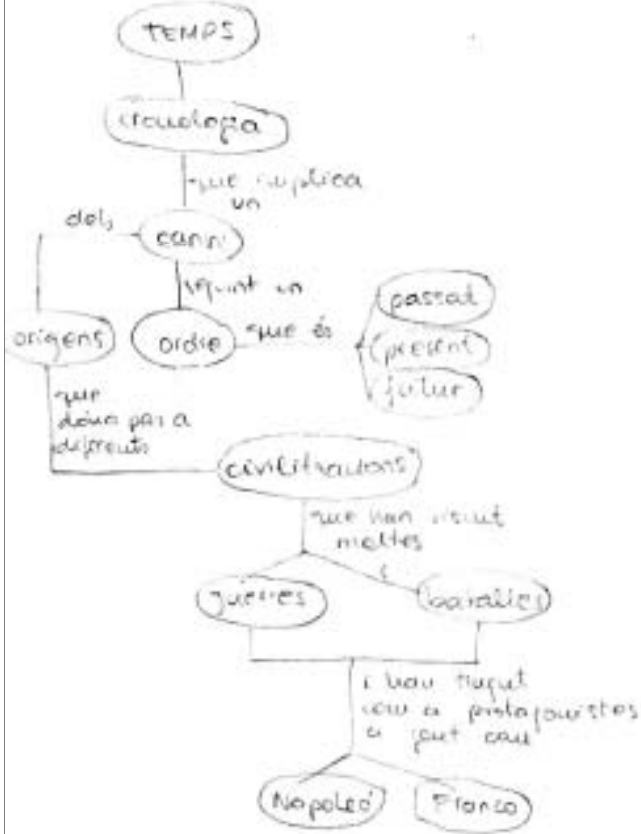 TEMPS
cronologia
que implica
un
dels
canvi
seguint un
origens
ordre
que és
passat
present
futur
que
dónen pas a
diferents
civilitzacions
que han viscut
moltes
i
guerres
batalles
i han tingut
com a protagonistes
a gent com
Napoleó
Franco